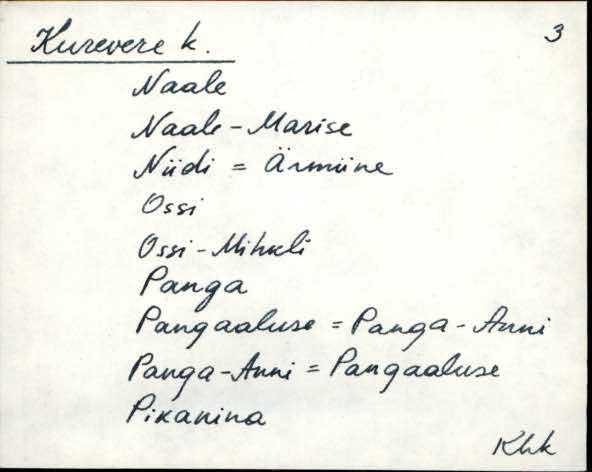 Kurevere k. 3
Naale
Naale-Marise
Niidi = Ärmiine
Ossi
Ossi-Mihkli
Panga
Pangaaluse = Panga-Anni
Panga-Anni = Pangaaluse
Pikanina
Khk